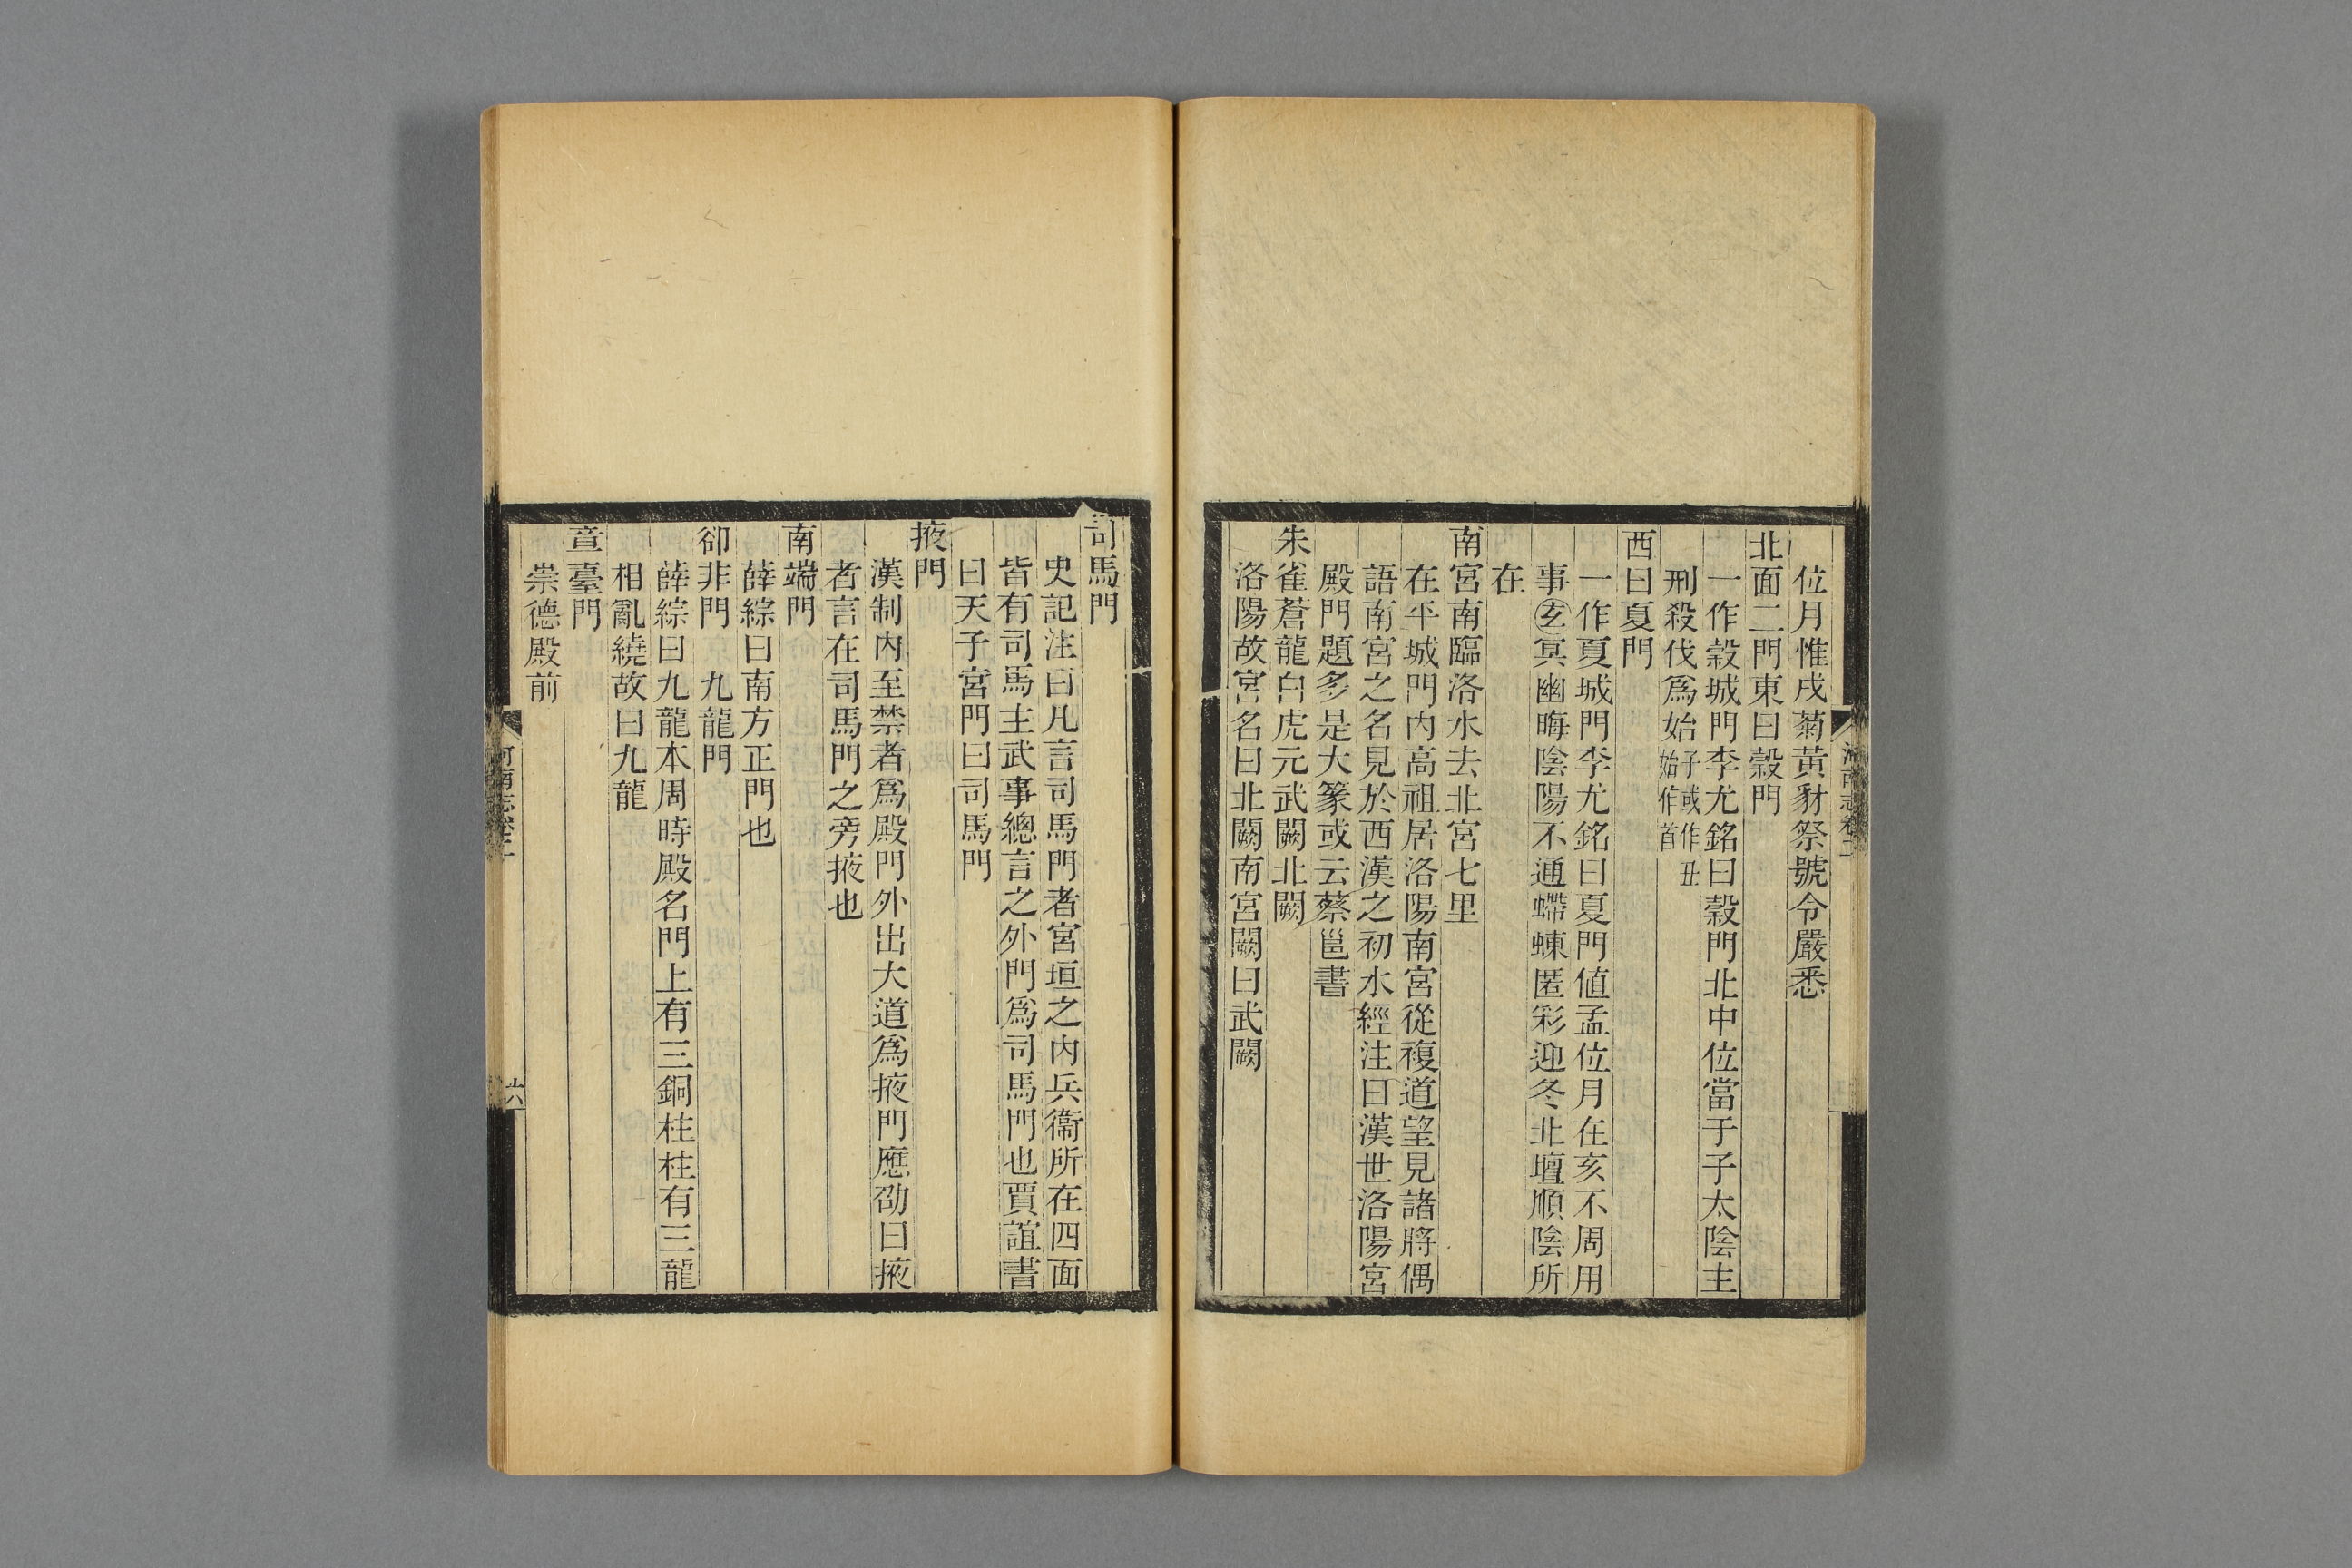 位月惟戌菊黃豺祭號令嚴悉
北面二門東曰榖門
一作榖城門李尤銘曰榖門北中位當于子太陰主
刑殺伐爲始子或作丑始作首
西曰夏門
一作夏城門李尤銘曰夏門値孟位月在亥不周用
事玄冥幽晦陰陽不通螮蝀匿彩迎冬北壇順陰所
在
南宮南臨洛水去北宮七里
在平城門內高祖居洛陽南宮從複道望見諸將偶
語南宮之名見於西漢之初水經注曰漢世洛陽宮
殿門題多是大篆或云蔡邕書
朱雀蒼龍白虎元武闕北闕
洛陽故宮名曰北闕南宮闕曰武闕
司馬門
史記注曰凡言司馬門者宮垣之內兵衞所在四面
皆有司馬主武事總言之外門爲司馬門也賈誼書
曰天子宮門曰司馬門
掖門
漢制內至禁者爲殿門外出大道爲掖門應劭曰掖
者言在司馬門之旁掖也
南端門
薛綜曰南方正門也
卻非門 九龍門
薛綜曰九龍本周時殿名門上有三銅柱柱有三龍
相亂繞故曰九龍
章臺門
崇德殿前
河南志卷二